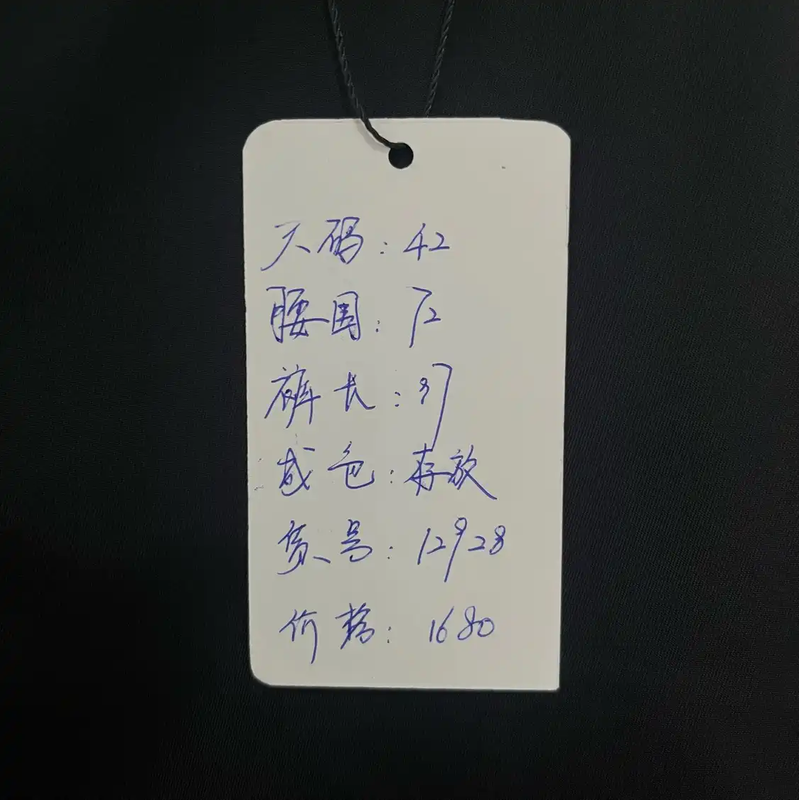 尺码：42
腰围：72
裤长：37
成色：存放
货号：12928
价格：1680